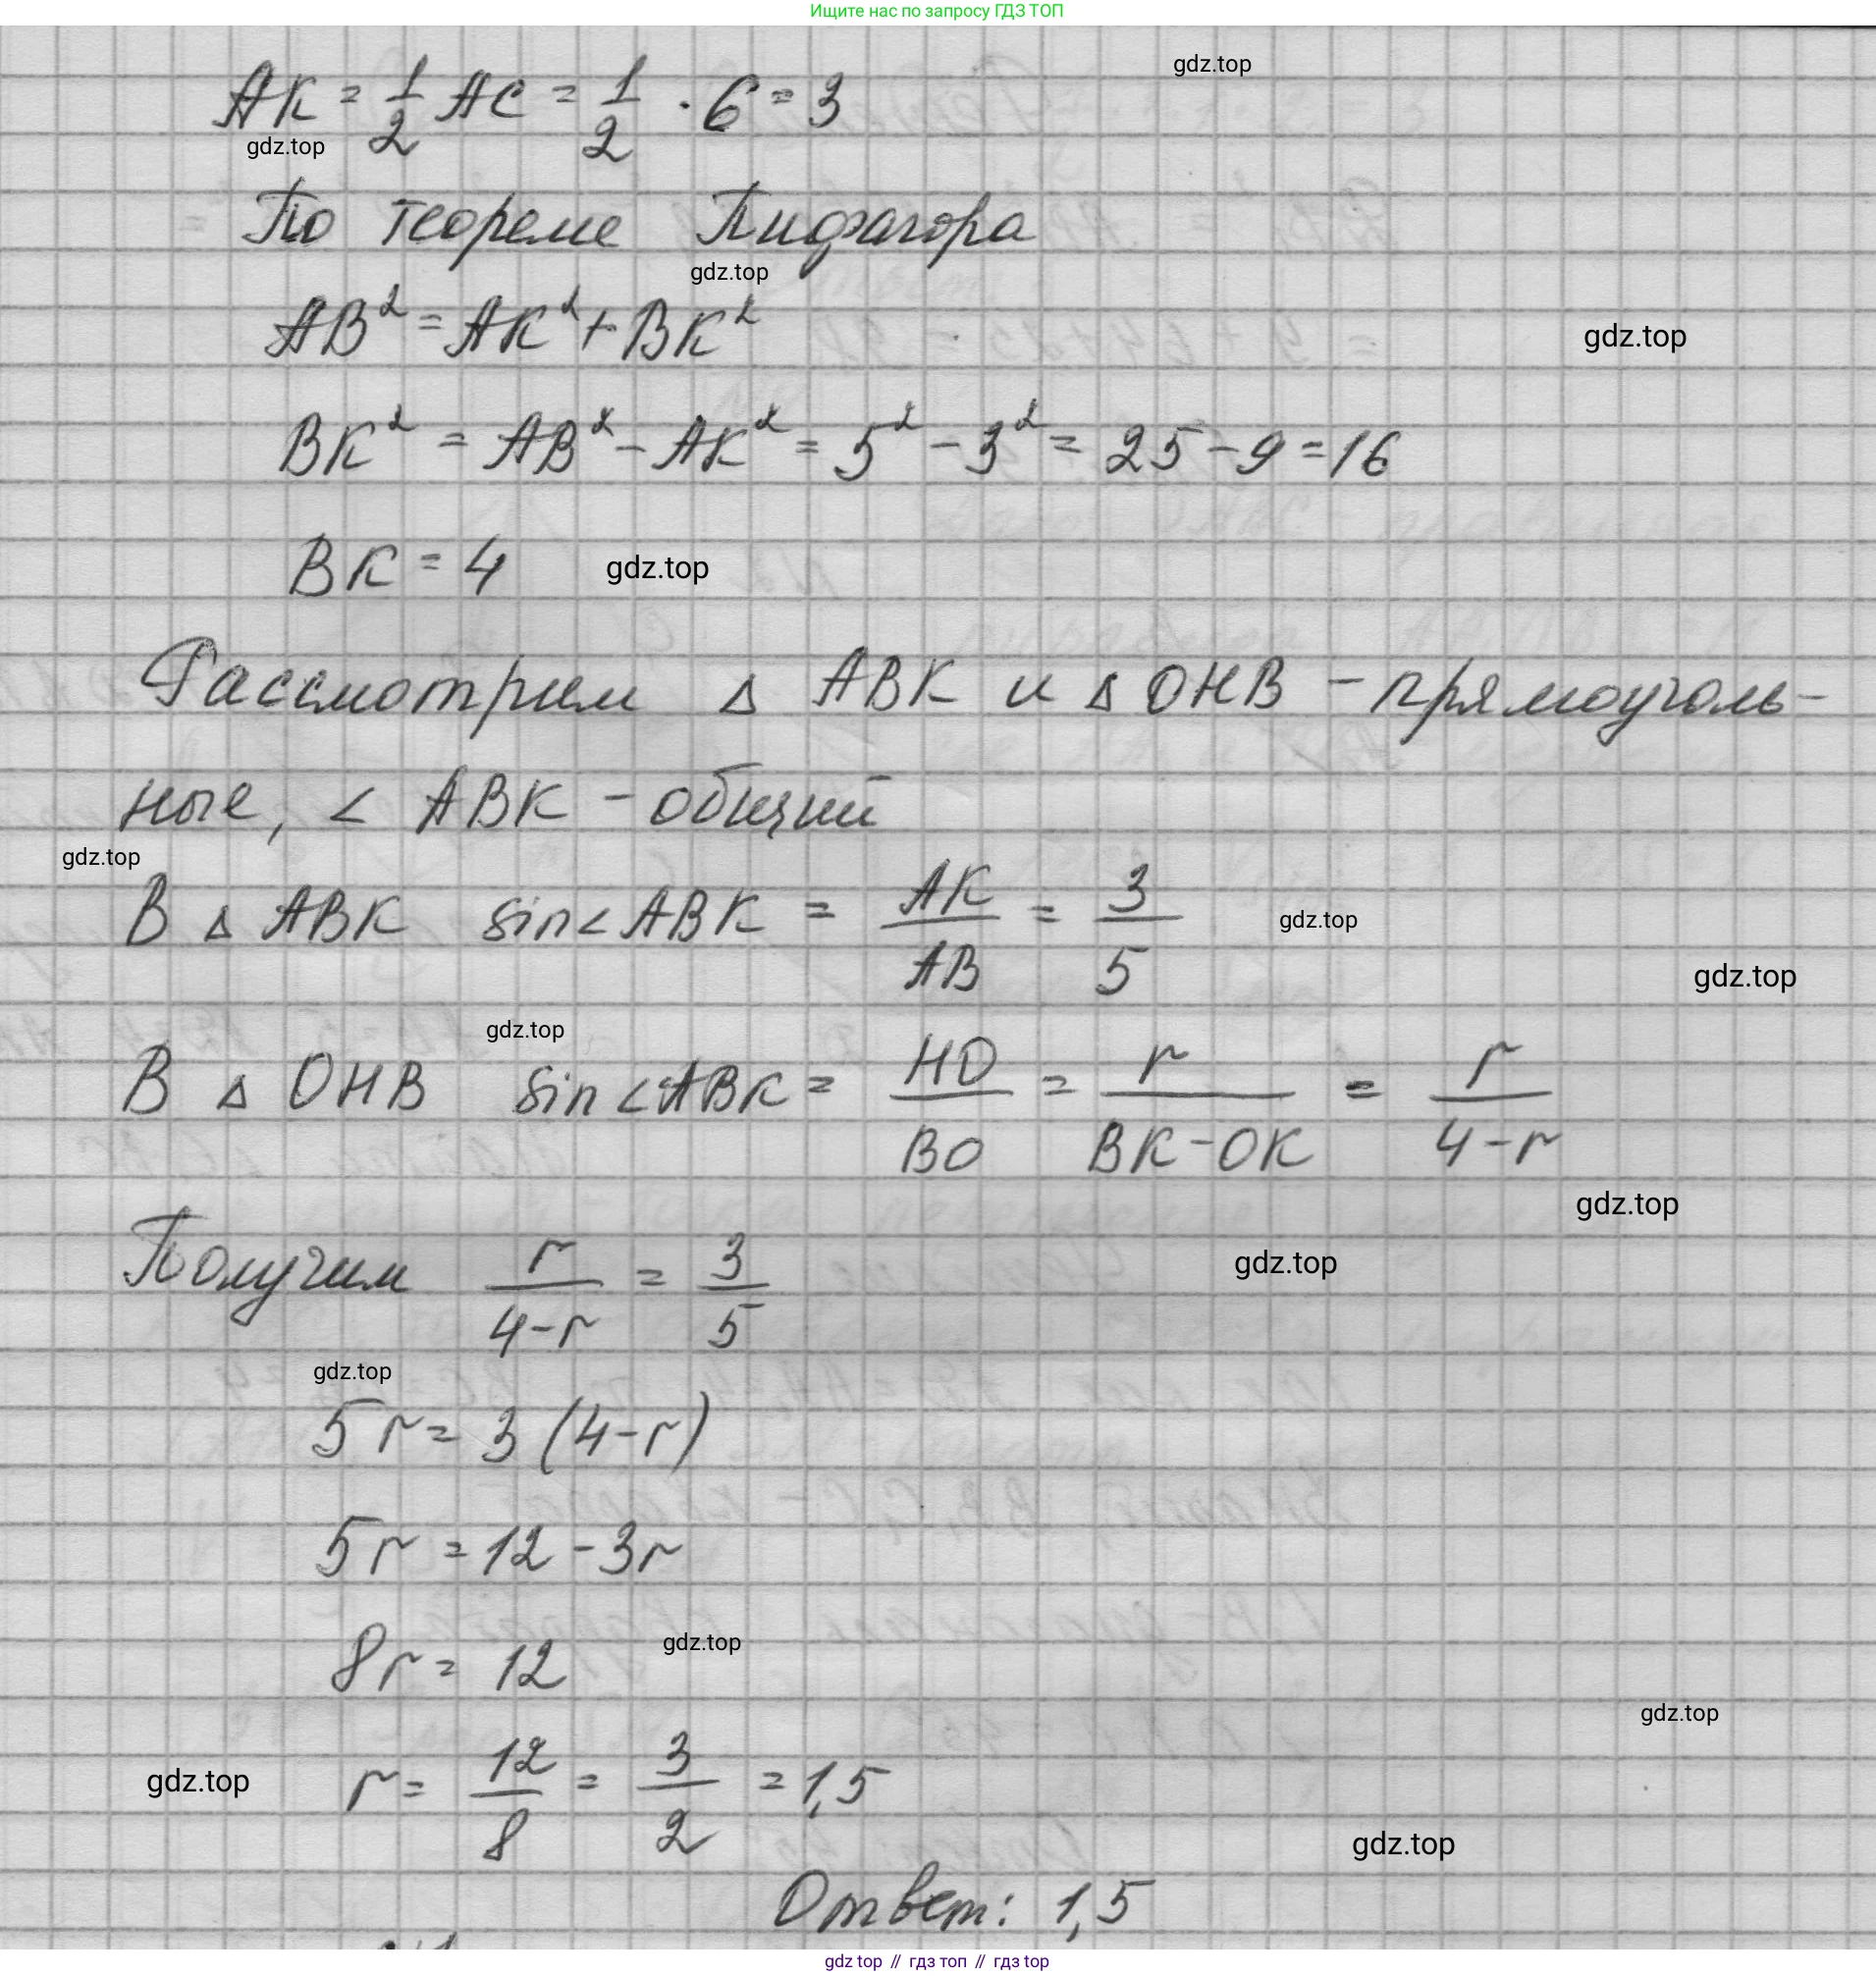 Ищите нас по запросу ГДЗ ТОП
gdz.top
AK = 1/2 AC = 1/2 · 6 = 3
gdz.top
По теореме Пифагора
gdz.top
AB² = AK² + BK²
gdz.top
BK² = AB² - AK² = 5² - 3² = 25 - 9 = 16
BK = 4 gdz.top
Рассмотрим Δ ABK и Δ OHB - прямоуголь-
ные, < ABK - общий
gdz.top
В Δ ABK sin < ABK = AK/AB = 3/5 gdz.top
gdz.top
gdz.top
В Δ OHB sin < ABK = HO/BO = r/(BK - OK) = r/(4-r)
gdz.top
Получим r/(4-r) = 3/5 gdz.top
gdz.top
5r = 3(4-r)
5r = 12 - 3r
8r = 12 gdz.top
gdz.top
gdz.top r = 12/8 = 3/2 = 1,5
gdz.top
Ответ: 1,5
gdz top // гдз топ // гдз top